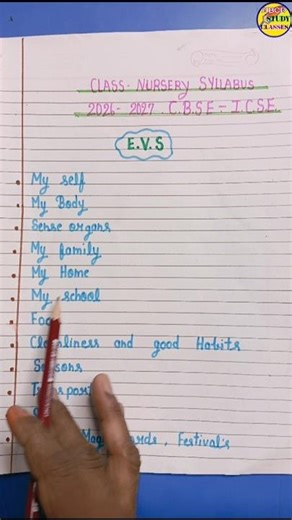 STUDY
CLASSES
CLASS- NURSERY SYLLABUS
2026- 2027 . C.B.S.E - I.C.S.E.
E.V.S
My self
My Body
Sense organs
My family
My Home
My school
Foo
Cleanliness and good Habits
Seasons
Transport
Magic words, Festival's